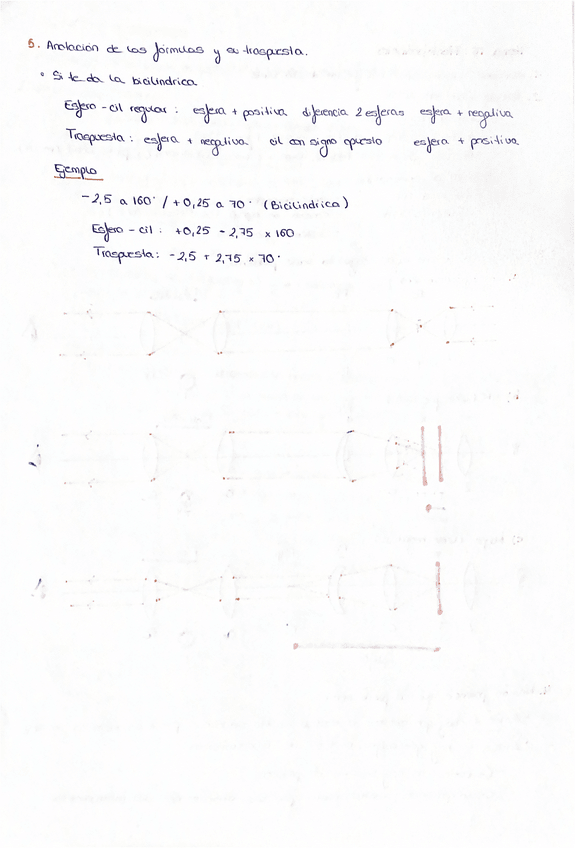 5. Anotación de las fórmulas y su traspuesta.
• Si te da la bicilíndrica
Esfero-cil regular: esfera + positiva diferencia 2 esferas esfera + negativa
Traspuesta: esfera + negativa cil con signo opuesto esfera + positiva
Ejemplo
-2,5 a 160° / +0,25 a 70° (Bicilíndrica)
Esfero-cil: +0,25 - 2,75 x 160
Traspuesta: -2,5 + 2,75 x 70°